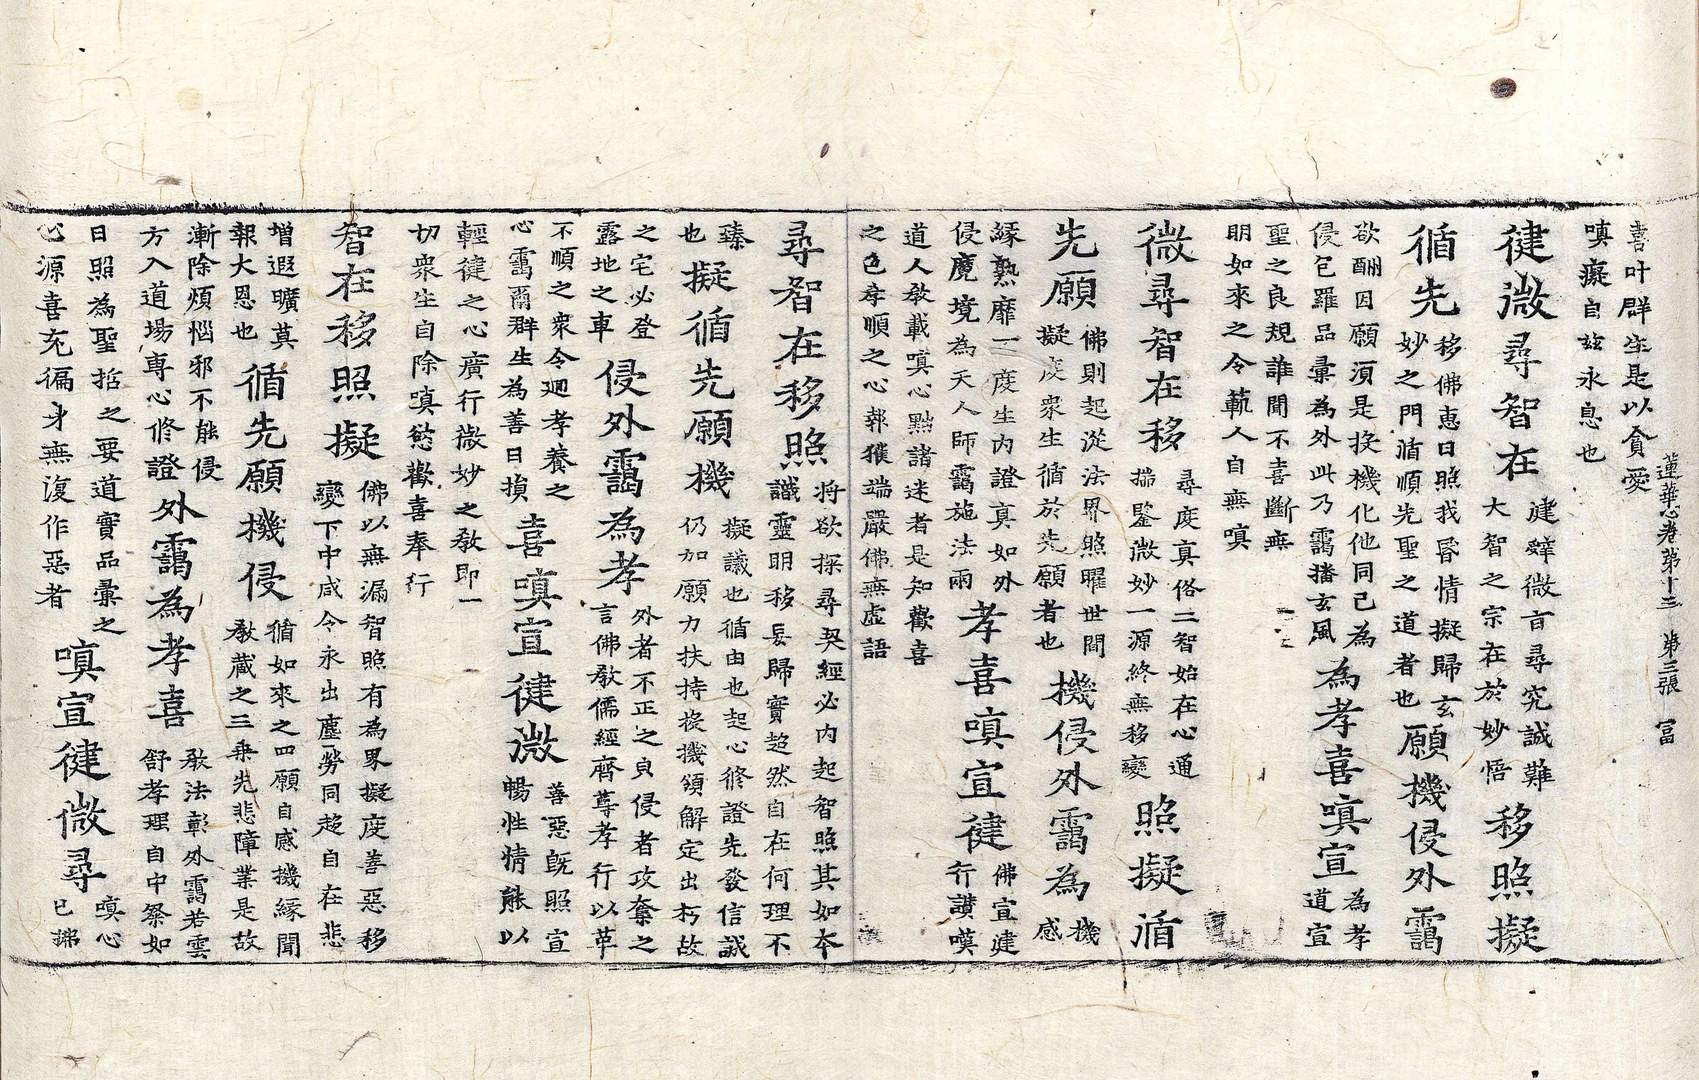 蓮華心卷第十三 第三張 冨
喜叶群生是以貪愛
嗔癡自玆永息也
徤微尋智在
徤辭微言尋究誠難
大智之宗在於妙悟
移照擬
循先
移佛惠日照我昏情擬歸玄
妙之門循順先聖之道者也
願機侵外靄
欲酬因願湏是投機化他同己為
侵包羅品彙為外此乃靄播玄風
為孝喜嗔宣
為孝
道宣
聖之良規誰聞不喜斷無
明如來之令軌人自無嗔
微尋智在移
尋度真俗二智始在心通
揣鑒微妙一源終無移變
照擬循
先願
佛則起從法界照曜世間
擬度衆生循於先願者也
機侵外靄為
機
感
緣熟靡一度生內證真如外
侵魔境為天人師靄施法雨
孝喜嗔宣徤
佛宣建
行讃嘆
道人教載嗔心點諸迷者是知歡喜
之色孝順之心報獲端嚴佛無虛語
尋智在移照
將欲採尋契經必內起智照其如本
識靈明移妄歸實超然自在何理不
臻
也
擬循先願機
擬議也循由也起心修證先發信誠
仍加願力扶持投機領解定出朽故
之宅必登
露地之車
侵外靄為孝
外者不正之皃侵者攻奪之
言佛教儒經齊尊孝行以革
不順之衆令迴孝養之
心靄爾群生為善日損
喜嗔宣徤微
善惡旣照宣
暢性情能以
輕徤之心廣行微妙之教即一
切衆生自除嗔慾歡喜奉行
智在移照擬
佛以無漏智照有為界擬度善惡移
變下中咸令永出塵勞同超自在悲
增遐曠莫
報大恩也
循先願機侵
循如來之四願自感機緣聞
教藏之三乘先悲障業是故
漸除煩惱邪不能侵
方入道場專心修證
外靄為孝喜
教法彰外靄若雲
舒孝理自中祭如
日照為聖哲之要道實品彙之
心源喜充徧身無復作惡者
嗔宣徤微尋
嗔心
已拂